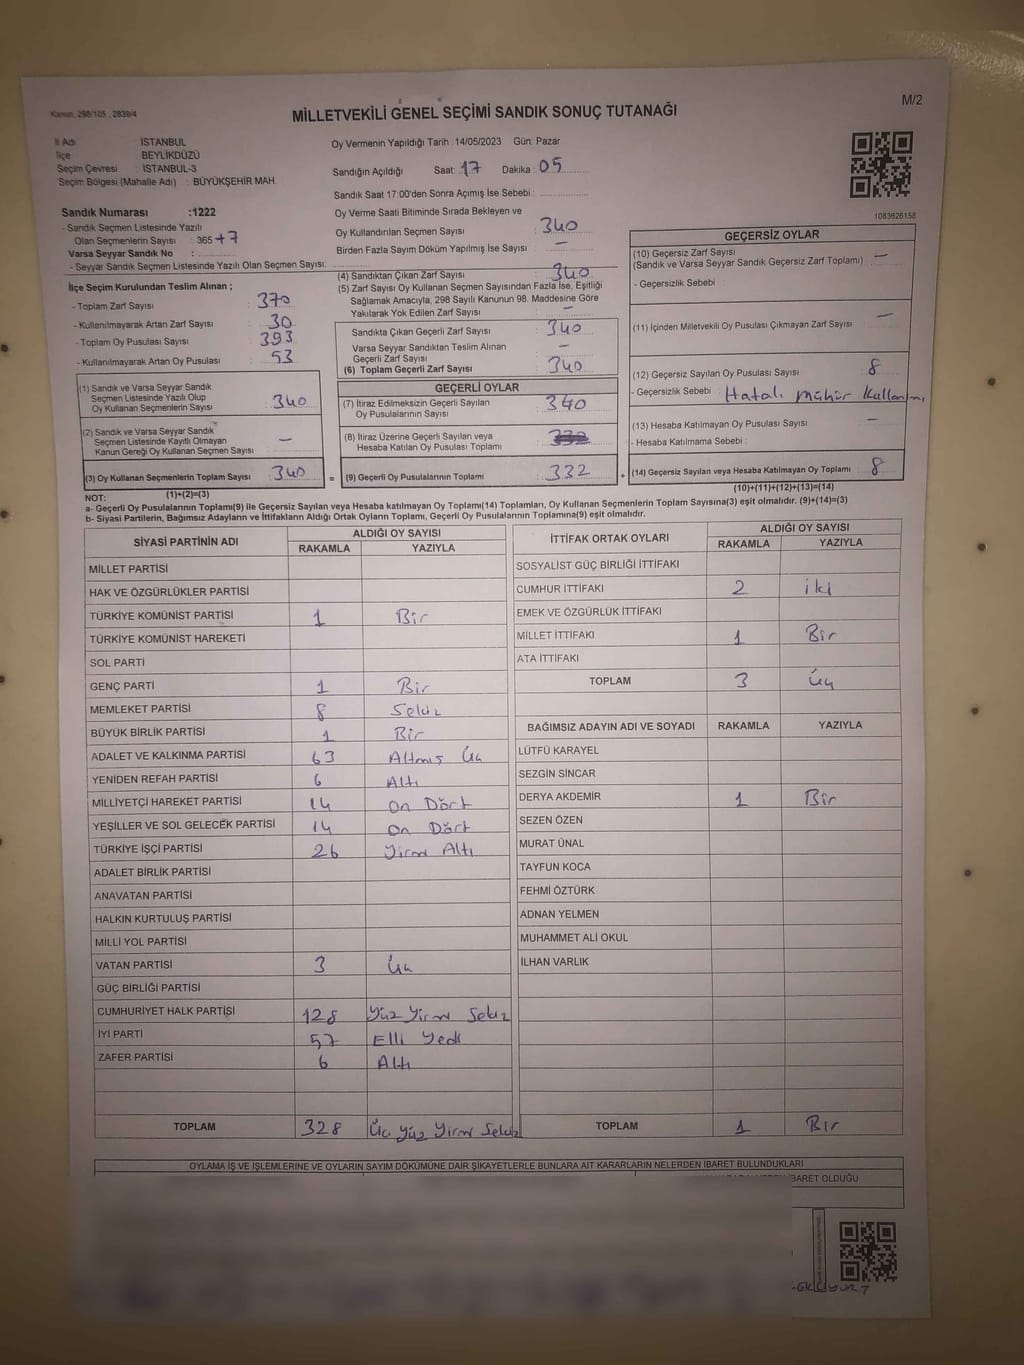 Kanun: 298/105 , 2839/4
M/2
MİLLETVEKİLİ GENEL SEÇİMİ SANDIK SONUÇ TUTANAĞI
İl Adı : İSTANBUL
İlçe : BEYLİKDÜZÜ
Seçim Çevresi : İSTANBUL-3
Seçim Bölgesi (Mahalle Adı) : BÜYÜKŞEHİR MAH.
Sandık Numarası :1222
- Sandık Seçmen Listesinde Yazılı
Olan Seçmenlerin Sayısı : 365 +7
Varsa Seyyar Sandık No :
- Seyyar Sandık Seçmen Listesinde Yazılı Olan Seçmen Sayısı:
Oy Vermenin Yapıldığı Tarih :14/05/2023 Gün: Pazar
Sandığın Açıldığı Saat: 17 Dakika: 05
Sandık Saat 17:00'den Sonra Açımış İse Sebebi :
Oy Verme Saati Bitiminde Sırada Bekleyen ve
Oy Kullandırılan Seçmen Sayısı : 340
Birden Fazla Sayım Döküm Yapılmış İse Sayısı : —
1083626158
İlçe Seçim Kurulundan Teslim Alınan ;
- Toplam Zarf Sayısı : 370
- Kullanılmayarak Artan Zarf Sayısı : 30
- Toplam Oy Pusulası Sayısı : 393
- Kullanılmayarak Artan Oy Pusulası : 53
(1) Sandık ve Varsa Seyyar Sandık
Seçmen Listesinde Yazılı Olup
Oy Kullanan Seçmenlerin Sayısı : 340
(2) Sandık ve Varsa Seyyar Sandık
Seçmen Listesinde Kayıtlı Olmayan
Kanun Gereği Oy Kullanan Seçmen Sayısı : —
(3) Oy Kullanan Seçmenlerin Toplam Sayısı : 340
(1)+(2)=(3)
(4) Sandıktan Çıkan Zarf Sayısı : 340
(5) Zarf Sayısı Oy Kullanan Seçmen Sayısından Fazla İse, Eşitliği
Sağlamak Amacıyla, 298 Sayılı Kanunun 98. Maddesine Göre
Yakılarak Yok Edilen Zarf Sayısı : —
Sandıkta Çıkan Geçerli Zarf Sayısı : 340
Varsa Seyyar Sandıktan Teslim Alınan
Geçerli Zarf Sayısı : —
(6) Toplam Geçerli Zarf Sayısı : 340
GEÇERLİ OYLAR
(7) İtiraz Edilmeksizin Geçerli Sayılan
Oy Pusulalarının Sayısı : 340
(8) İtiraz Üzerine Geçerli Sayılan veya
Hesaba Katılan Oy Pusulası Toplamı :
= (9) Geçerli Oy Pusulalarının Toplamı : 332 +
GEÇERSİZ OYLAR
(10) Geçersiz Zarf Sayısı : —
(Sandık ve Varsa Seyyar Sandık Geçersiz Zarf Toplamı)
- Geçersizlik Sebebi
(11) İçinden Milletvekili Oy Pusulası Çıkmayan Zarf Sayısı : —
(12) Geçersiz Sayılan Oy Pusulası Sayısı : 8
- Geçersizlik Sebebi : Hatalı mühür kullanımı
(13) Hesaba Katılmayan Oy Pusulası Sayısı : —
- Hesaba Katılmama Sebebi :
(14) Geçersiz Sayılan veya Hesaba Katılmayan Oy Toplamı : 8
(10)+(11)+(12)+(13)=(14)
NOT:
a- Geçerli Oy Pusulalarının Toplamı(9) ile Geçersiz Sayılan veya Hesaba katılmayan Oy Toplam(14) Toplamları, Oy Kullanan Seçmenlerin Toplam Sayısına(3) eşit olmalıdır. (9)+(14)=(3)
b- Siyasi Partilerin, Bağımsız Adayların ve İttifakların Aldığı Ortak Oyların Toplamı, Geçerli Oy Pusulalarının Toplamına(9) eşit olmalıdır.
SİYASİ PARTİNİN ADI ALDIĞI OY SAYISI
RAKAMLA YAZIYLA
MİLLET PARTİSİ
HAK VE ÖZGÜRLÜKLER PARTİSİ
TÜRKİYE KOMÜNİST PARTİSİ 1 Bir
TÜRKİYE KOMÜNİST HAREKETİ
SOL PARTİ
GENÇ PARTİ 1 Bir
MEMLEKET PARTİSİ 8 Sekiz
BÜYÜK BİRLİK PARTİSİ 1 Bir
ADALET VE KALKINMA PARTİSİ 63 Altmış Üç
YENİDEN REFAH PARTİSİ 6 Altı
MİLLİYETÇİ HAREKET PARTİSİ 14 On Dört
YEŞİLLER VE SOL GELECEK PARTİSİ 14 On Dört
TÜRKİYE İŞÇİ PARTİSİ 26 Yirmi Altı
ADALET BİRLİK PARTİSİ
ANAVATAN PARTİSİ
HALKIN KURTULUŞ PARTİSİ
MİLLİ YOL PARTİSİ
VATAN PARTİSİ 3 Üç
GÜÇ BİRLİĞİ PARTİSİ
CUMHURİYET HALK PARTİSİ 128 Yüz Yirmi Sekiz
İYİ PARTİ 57 Elli Yedi
ZAFER PARTİSİ 6 Altı
TOPLAM 328 Üç Yüz Yirmi Sekiz
İTTİFAK ORTAK OYLARI ALDIĞI OY SAYISI
RAKAMLA YAZIYLA
SOSYALİST GÜÇ BİRLİĞİ İTTİFAKI
CUMHUR İTTİFAKI 2 iki
EMEK VE ÖZGÜRLÜK İTTİFAKI
MİLLET İTTİFAKI 1 Bir
ATA İTTİFAKI
TOPLAM 3 Üç
BAĞIMSIZ ADAYIN ADI VE SOYADI RAKAMLA YAZIYLA
LÜTFÜ KARAYEL
SEZGİN SİNCAR
DERYA AKDEMİR 1 Bir
SEZEN ÖZEN
MURAT ÜNAL
TAYFUN KOCA
FEHMİ ÖZTÜRK
ADNAN YELMEN
MUHAMMET ALİ OKUL
İLHAN VARLIK
TOPLAM 1 Bir
OYLAMA İŞ VE İŞLEMLERİNE VE OYLARIN SAYIM DÖKÜMÜNE DAİR ŞİKAYETLERLE BUNLARA AİT KARARLARIN NELERDEN İBARET BULUNDUKLARI
İBARET OLDUĞU